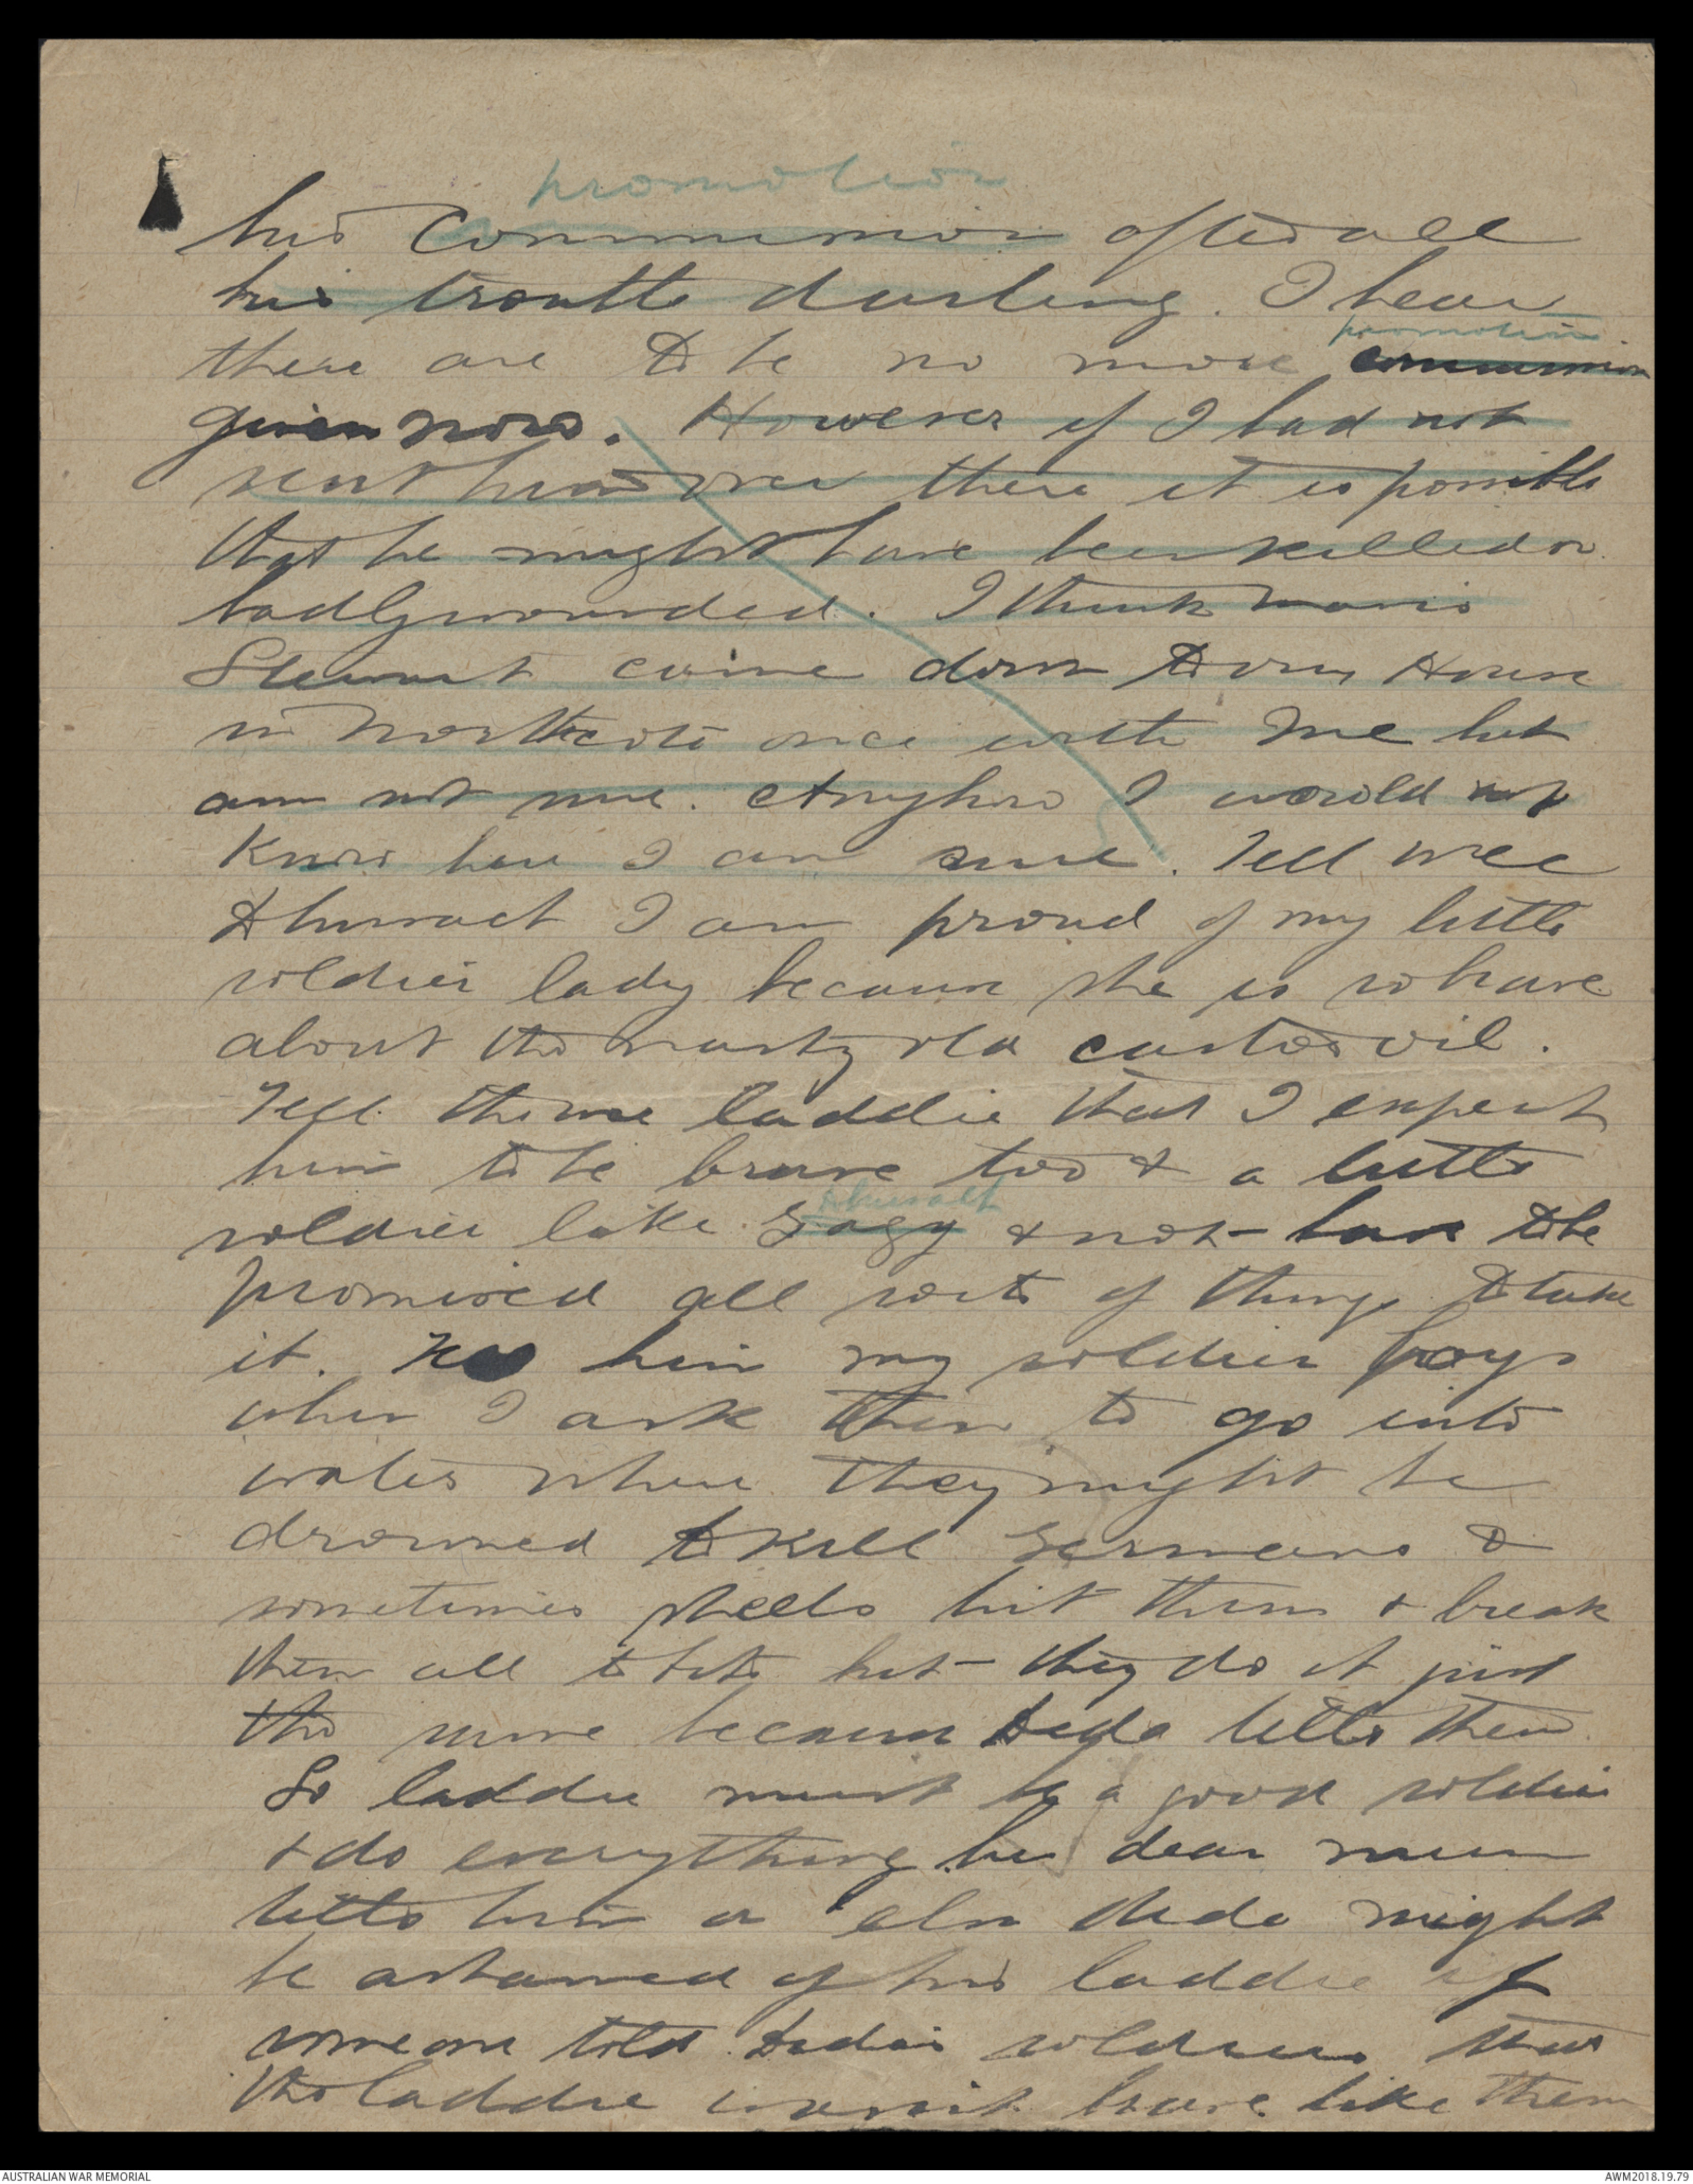 promotion
his Commission after all
his trouble darling. I hear
promotion
there are to be no more commission
given now. However if I had not
sent him over there it is possible
that he might have been killed or
badly wounded. I think
Stewart came down to our House
in Northcote once with me but
am not sure. Anyhow I would not
know her I am sure. Tell wee
Thurnact I am proud of my little
soldier lady because she is so brave
about the nasty old castor oil.
Tell the wee laddie that I expect
him to be brave too & a little
soldier like & not have to be
promised all sorts of things to take
it. him my soldier boys
when I ask them to go into
water where they might be
drowned to kill Germans &
sometimes shells hit them & break
them all to bits but they do it just
the same because Deda tells them.
So laddie must be a good soldier
& do everything his dear mum
tells him or else deda might
be ashamed of his laddie if
someone told Deda's soldiers that
the laddie wasn't brave like them
AUSTRALIAN WAR MEMORIAL
AWM2018.19.79